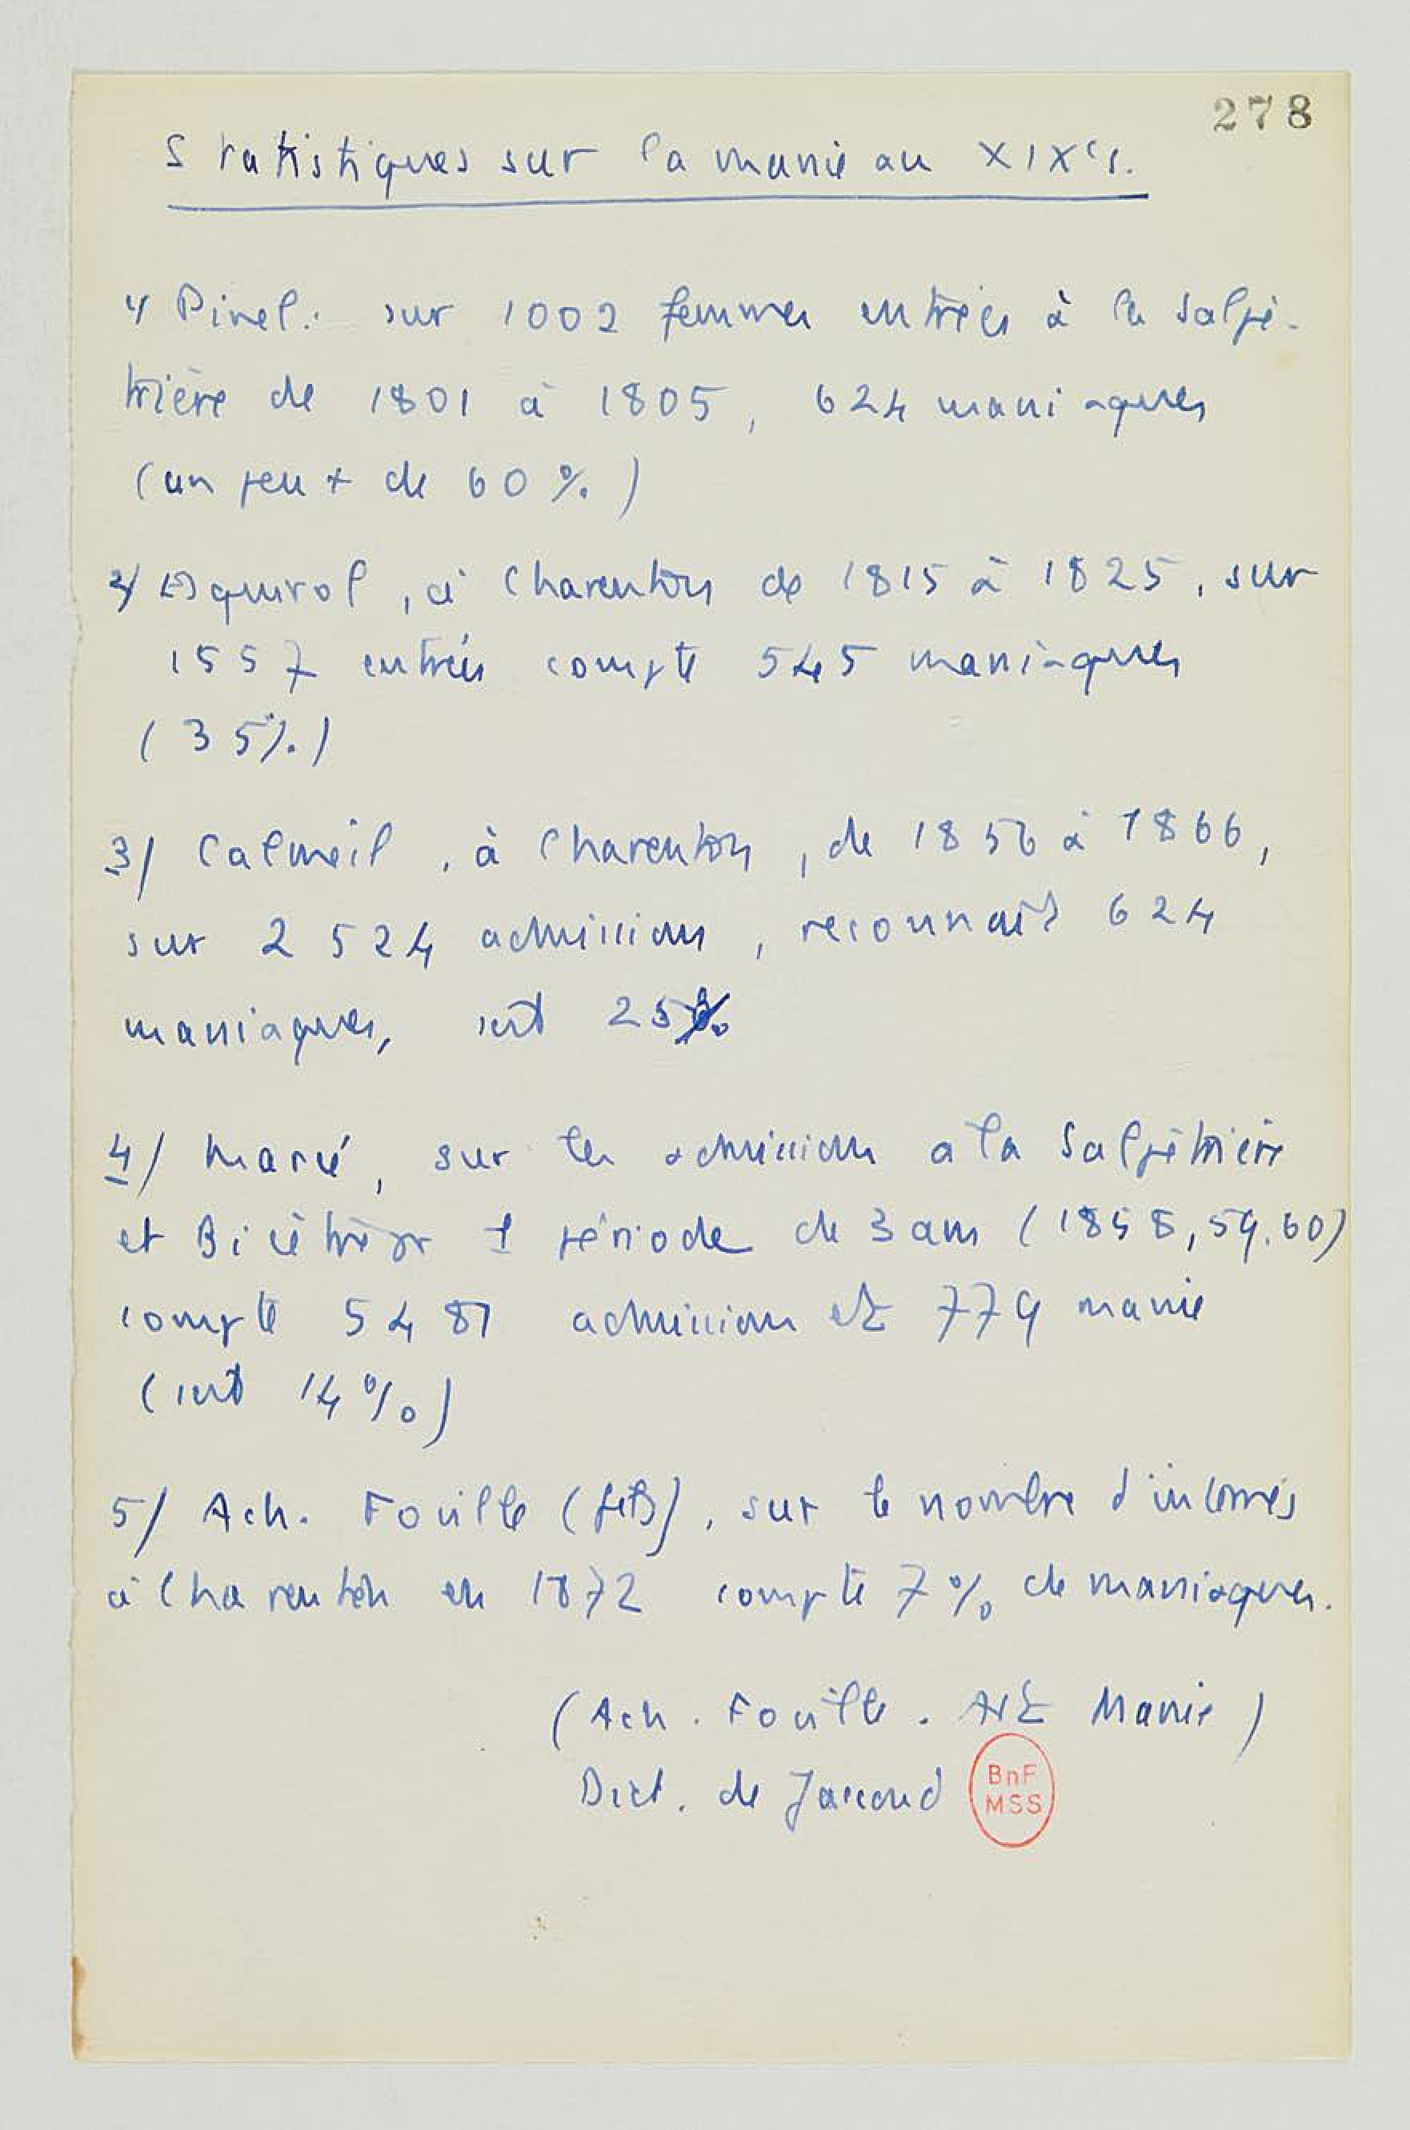 278
Statistiques sur la manie au XIXe s.
1/ Pinel : sur 1002 femmes entrées à la Salpê-
trière de 1801 à 1805, 624 maniaques
(un peu + de 60 %)
2/ Esquirol, à Charenton de 1815 à 1825, sur
1557 entrées compte 545 maniaques
(35%)
3/ Calmeil, à Charenton, de 1856 à 1866,
sur 2 524 admissions, reconnaît 624
maniaques, soit 25%
4/ Marcé, sur les admissions à la Salpêtrière
et Bicêtre pr 1 période de 3 ans (1858, 59.60)
compte 5481 admissions et 779 manie
(soit 14%)
5/ Ach. Foville (fils), sur le nombre d'internés
à Charenton en 1872 compte 7% de maniaques.
(Ach. Foville. Art Manie)
Dict. de Jaccoud
BnF
MSS